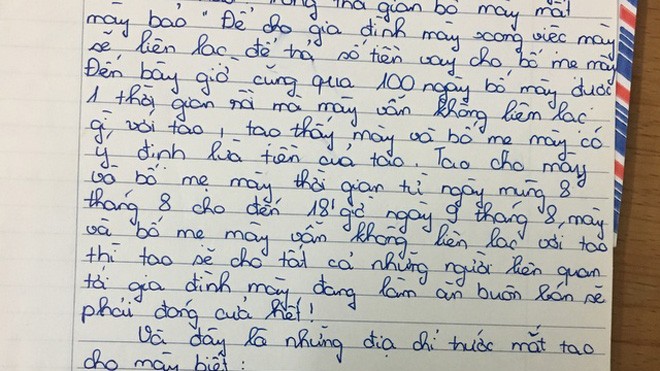 trong thời gian bố mày mất
mày bảo "Để cho gia đình mày xong việc mày
sẽ liên lạc để trả số tiền vay cho bố mẹ mày
Đến bây giờ cũng qua 100 ngày bố mày được
1 thời gian rồi mà mày vẫn không liên lạc
gì với tao, tao thấy mày và bố mẹ mày có
ý định lừa tiền của tao. Tao cho mày
và bố mẹ mày thời gian từ ngày mùng 8
tháng 8 cho đến 18 giờ ngày 9 tháng 8, mày
và bố mẹ mày vẫn không liên lạc với tao
thì tao sẽ cho tất cả những người liên quan
tới gia đình mày đang làm ăn buôn bán sẽ
phải đóng cửa hết!
Và đây là những địa chỉ trước mắt tao
cho mày biết: